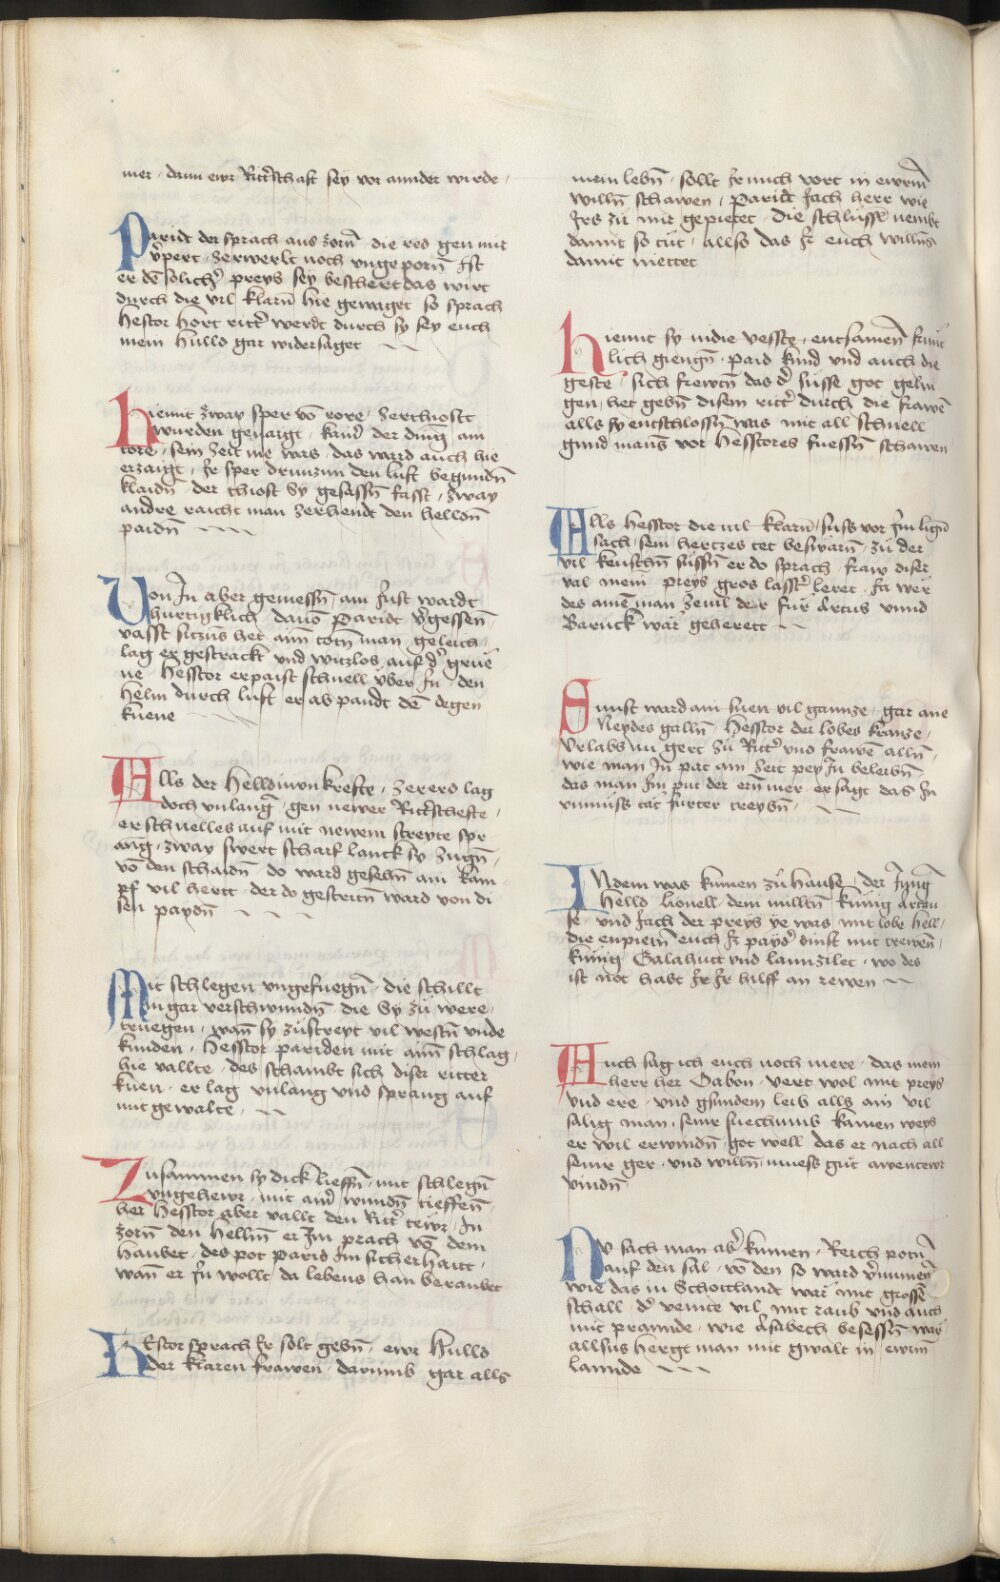 mer · dann ewr Ritt̄schaft sey vor annder wirde ·
Paridt der sprach aus zorn̄ · die red gen mir
v̄pert · zerwerlt noch vngeporn̄ Ist
er dē solich̄ preys sey beschert das wirt
durch die vil klarn̄ hie gewaget so sprach
Hector hort ritt̄ werdt durch sy sey euch
mein hulld gar widersaget
Hiemit zway sper vō rore · zerthiostt
wurden genaigt · kainr̄ der ding am
tore · sein zeit nie was · das ward auch hie
erzaigt · Ir sper drunzun den luft begundn̄
klaidn̄ · der thiost Sy gesassn̄ fasst · zway
andre raicht man zerhendt den helldn̄
paidn̄
Von In aber gemessn̄ · am Iust wardt
hurtigklich · dauō Paridt v̄gessen̄
vasst sitzns het ann totn̄ man geleich
lag er gestrackt vnd witzlos auf d̄ grüe
ne · Hesstor erpaist schnell v̈ber In · den
helm durch luft er ab pandt dē degen
kuene
Alls der helld in vnkrefte · zererd lag
doch vnlanḡ · gen newer Ritt̄schefte ·
er schnelles auf mit newem streyte spr
ang · zway swert scharf lanck sy zugn̄ ·
vō den schaidn̄ · do ward gesehn̄ ain kam
pf vil hertt · der do gestritn̄ ward von di
sen paydn̄
Mit schlegen vngefuegn̄ · die schillt
in gar verschwundn̄ die Sy zu were ·
truegen · wan̄ sy zustreyt vil westn̄ vnde
kunden · Hesstor pariden mit ainn̄ schlag ·
hie vallte · des schambt sich diser ritter
kuen · er lag vnlang vnd sprang auf
mit gewalte ·
Zusammen sy dick lieffn̄ · mit schlegn̄
vngehewr · mit ainr̄ wundn̄ tieffen̄ ·
her Hesstor aber vallt den Ritt̄ tewr · In
zorn̄ den hellm̄ er Im prach vō dem
haubet · des pot Paris Im sicherhait ·
wan̄ er In wollt da lebens han beraubet
HEstor sprach Ir solt gebn̄ · ewr hulld
der klaren frawen · darumb gar alls
mein lebn̄ · sollt Ir mich vort in ewrm̄
willn̄ schawen · Paridt Iach herr wie
Irs zu mir gepietet · die schlüssl nembt
damit so tüt · allso das Ir euch willns
damit nietet
Hiemit sy in die vesste · entsamen̄ frünt
lich giengn̄ · paid kind vnd auch die
geste · sich frewtn̄ das d̄ süsse got gelin
gen · het gebn̄ disem ritt̄ durch die frawē
alls sy entschlossn̄ was mit all schnell
gund mans vor Hesstores fuessn̄ schawen
Alls Hesstor die vil klarn̄ · suss vor Im lign̄
sach · sein hertzes tet beswärn̄ · zü der
vil keuschn̄ süssn̄ er do sprach · fraw diser
val mein preys gros lasst̄ leret · Ja wer
des ainē man zeuil der für Artus vnnd
Baruck wär geherett
Sunst ward ain suen vil gantze · gar ane
Neydes galln̄ · Hesstor der lobes krantze ·
Vrlabs nu gert zü Ritt̄ vnd frawē allñ ·
wie man In pat ain zeit pey In beleibn̄ ·
das man Im put der ern̄ mer er sagt das In
vnmüss tät furter treybn̄ ·
INdem was kumen zü hause · der Iunḡ
helld Lionell · dem milltn̄ künig artau
se · vnd Iach der preys ye was mit lobe hell ·
die enpietn̄ euch Ir payd̄ dinst mit trewen̄ ·
künig Galahutt vnd lanntzilet · wo des
ist not habt Ir Ir hilff an rewen
Auch sag ich euch noch mere · das mein
herr her Gabon · vert wol mit preys
vnd ere · vnd gsundem leib alls ain vil
sälig man · seinr suechumb kainen weys
er wil erwindn̄ · got well das er nach all
seinr ger · vnd willn̄ muess güt awentewr
vindn̄
NV sach man ab̄ kumen · Reich potn̄
auf den sal · vō den so ward v̄numen̄
wie das in Schottlandt wär mit grossē
schall · d̄ veinte vil mit raub vnd auch
mit prannde · wie Arsabech besessn̄ wär
allsus hergt man mit gwalt in ewrm̄
lannde